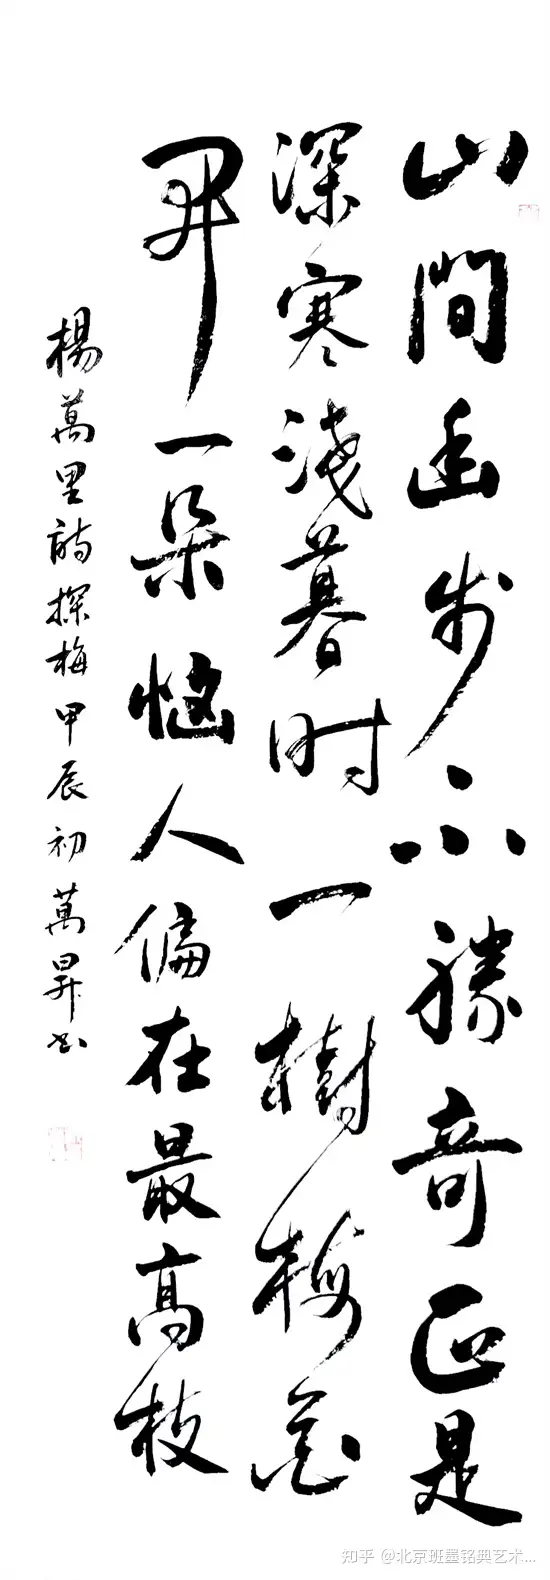 山間幽步不勝奇正是
深寒淺暮时一樹梅花
開一朵惱人偏在最高枝
楊萬里詩探梅甲辰初萬昇书
知乎 @北京班墨铭典艺术...